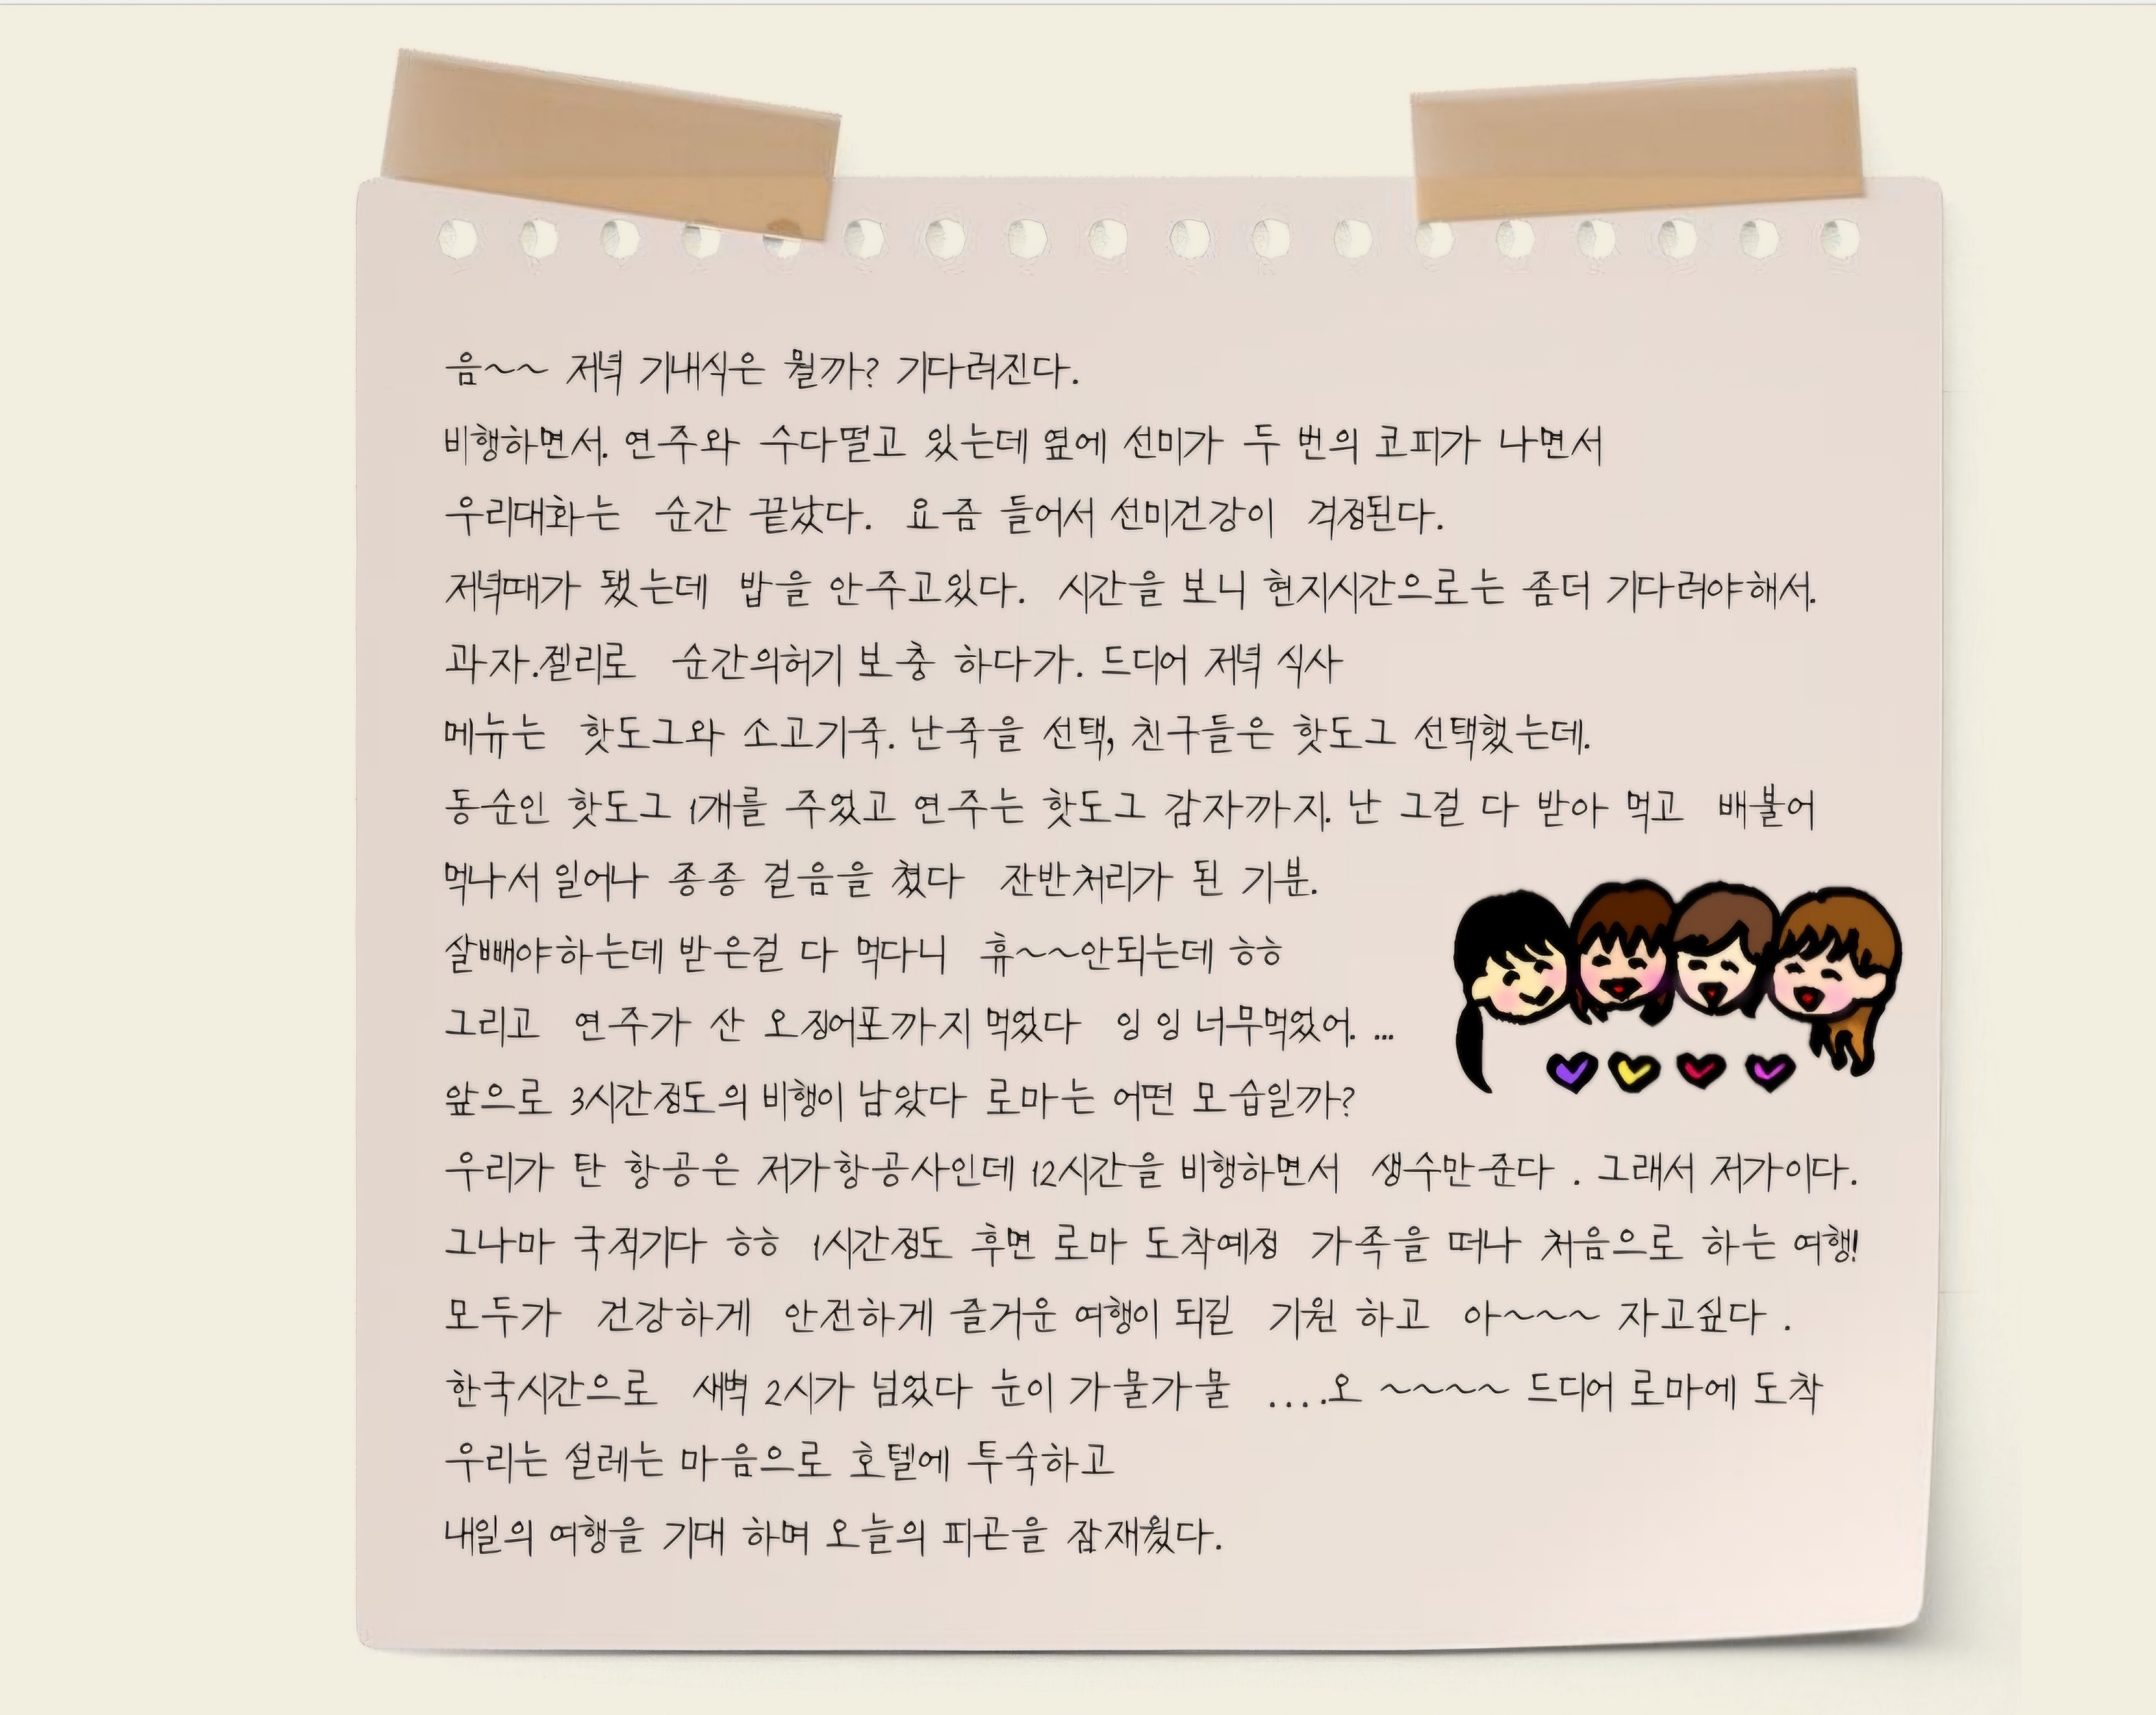 음~~ 저녁 기내식은 뭘까? 기다려진다.
비행하면서. 연주와 수다떨고 있는데 옆에 선미가 두 번의 코피가 나면서
우리대화는 순간 끝났다. 요즘 들어서 선미건강이 걱정된다.
저녁때가 됐는데 밥을 안주고있다. 시간을 보니 현지시간으로는 좀더 기다려야해서.
과자.젤리로 순간의허기 보충 하다가. 드디어 저녁 식사
메뉴는 핫도그와 소고기죽. 난죽을 선택, 친구들은 핫도그 선택했는데.
동순인 핫도그 1개를 주었고 연주는 핫도그 감자까지. 난 그걸 다 받아 먹고 배불어
먹나서 일어나 종종 걸음을 쳤다 잔반처리가 된 기분.
살빼야하는데 받은걸 다 먹다니 휴~~안되는데 ㅎㅎ
그리고 연주가 산 오징어포까지 먹었다 잉 잉 너무먹었어. ...
앞으로 3시간정도의 비행이 남았다 로마는 어떤 모습일까?
우리가 탄 항공은 저가항공사인데 12시간을 비행하면서 생수만준다 . 그래서 저가이다.
그나마 국적기다 ㅎㅎ 1시간정도 후면 로마 도착예정 가족을 떠나 처음으로 하는 여행!
모두가 건강하게 안전하게 즐거운 여행이 되길 기원 하고 아~~~ 자고싶다 .
한국시간으로 새벽 2시가 넘었다 눈이 가물가물 ....오 ~~~~ 드디어 로마에 도착
우리는 설레는 마음으로 호텔에 투숙하고
내일의 여행을 기대 하며 오늘의 피곤을 잠재웠다.